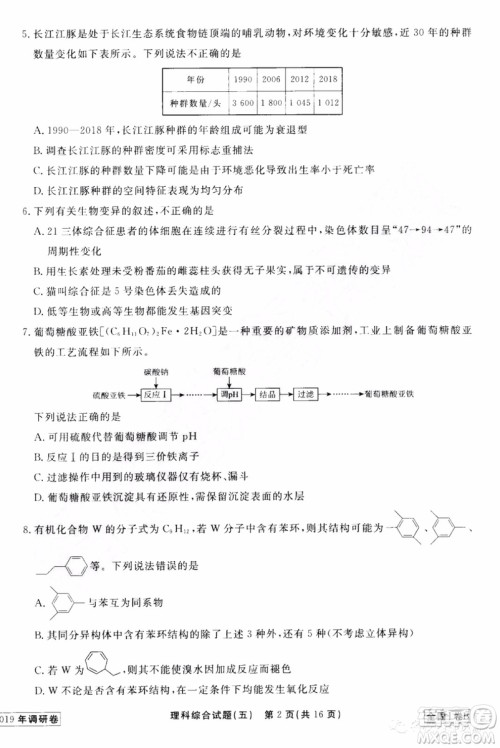 5. 长江江豚是处于长江生态系统食物链顶端的哺乳动物，对环境变化十分敏感，近 30 年的种群
数量变化如下表所示。下列说法不正确的是
年份 1990 2006 2012 2018
种群数量/头 3 600 1 800 1 045 1 012
A. 1990—2018 年，长江江豚种群的年龄组成可能为衰退型
B. 调查长江江豚的种群密度可采用标志重捕法
C. 环境恶化导致长江江豚种群的出生率小于死亡率
D. 长江江豚种群的空间特征表现为均匀分布
6. 下列有关生物变异的叙述，不正确的是
A. 21 三体综合征患者的体细胞在连续进行有丝分裂过程中，染色体数呈现出“47→94→47”的
周期性变化
B. 用生长素处理未受粉番茄的雌蕊或子房，获得的无子番茄为不可遗传变异
C. 猫叫综合征是 5 号染色体丢失造成的
D. 低等生物或高等生物都能发生基因突变
7. 葡萄糖酸亚铁[(C₆H₁₁O₇)₂Fe·2H₂O]是一种重要的矿物质添加剂，工业上制备葡萄糖酸亚
铁的工艺流程如下所示。
碳酸钠 葡萄糖酸
硫酸亚铁 反应Ⅰ 调pH 结晶 过滤 葡萄糖酸亚铁
下列说法正确的是
A. 可用硫酸代替葡萄糖酸调节 pH
B. 反应Ⅰ的目的是为了除去杂质
C. 过滤操作中用到的玻璃仪器仅有烧杯、漏斗
D. 葡萄糖酸亚铁沉淀具有还原性，需要真空干燥的目的是除去表面水层
8. 有机化合物 W 的分子式为 C₉H₁₂，若 W 分子中含有苯环，则其结构可能为 、 、
等。下列说法错误的是
A. 与苯互为同系物
B. 其同分异构体中含有苯环结构的数目大于 3 种，小于 10 种
C. 若 W 为 ，不可能使溴水因反应而褪色
D. W 的同分异构体可能存在多个碳碳双键
019 年调研卷
理科综合试题(五) 第 2 页(共 16 页)